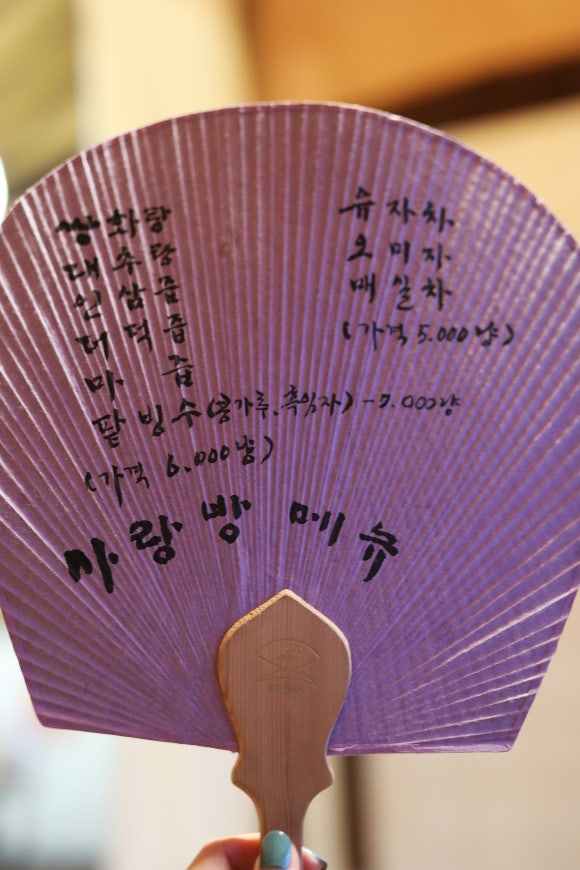 쌍화탕
대추탕
인삼즙
더덕즙
마 즙
팥빙수(콩가루.흑임자)-7.000냥
(가격 6.000냥)
유자차
오미자
매실차
(가격 5.000냥)
사랑방 메뉴